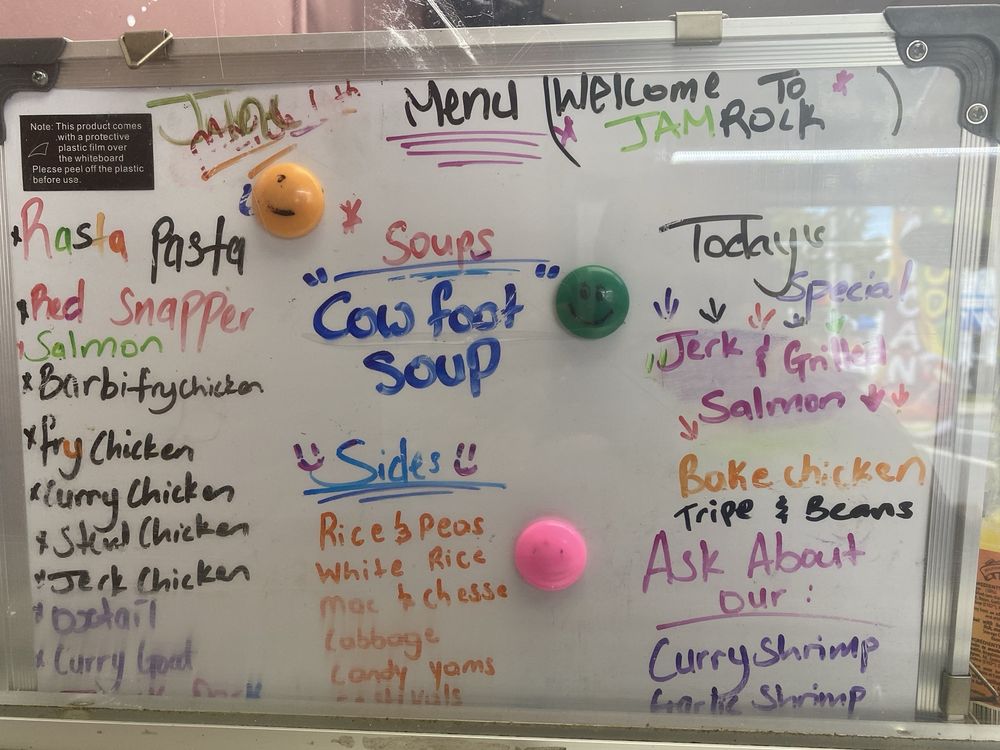 Menu (Welcome To
JAMROCK)
Note: This product comes
with a protective
plastic film over
the whiteboard
Please peel off the plastic
before use.
Rasta Pasta
Red Snapper
Salmon
Barbi-frychicken
fry Chicken
Curry Chicken
Stew Chicken
Jerk Chicken
Oxtail
Curry Goat
Soups
"Cow foot"
Soup
Sides
Rice & Peas
White Rice
Mac & chesse
Cabbage
Candy yams
Today's
Special
Jerk & Grilled
Salmon
Bake chicken
Tripe & Beans
Ask About
our:
Curry shrimp
Garlic Shrimp